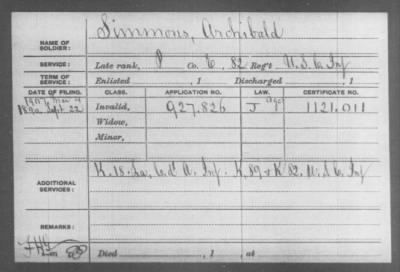 NAME OF SOLDIER: Simmons, Archibald
SERVICE: Late rank, P Co. C, 82 Reg't U.S.C. Inf
TERM OF SERVICE: Enlisted , 1 Discharged , 1
DATE OF FILING. CLASS. APPLICATION NO. LAW. CERTIFICATE NO.
1907, Mar 4
189 Sept. 22 Invalid, 927.826 J Age 1121.011
Widow,
Minor,
ADDITIONAL SERVICES: K. 18. La. C. d' A. Inf. K. 89 & K 82. U.S.C. Inf
REMARKS:
Died , 1 , at